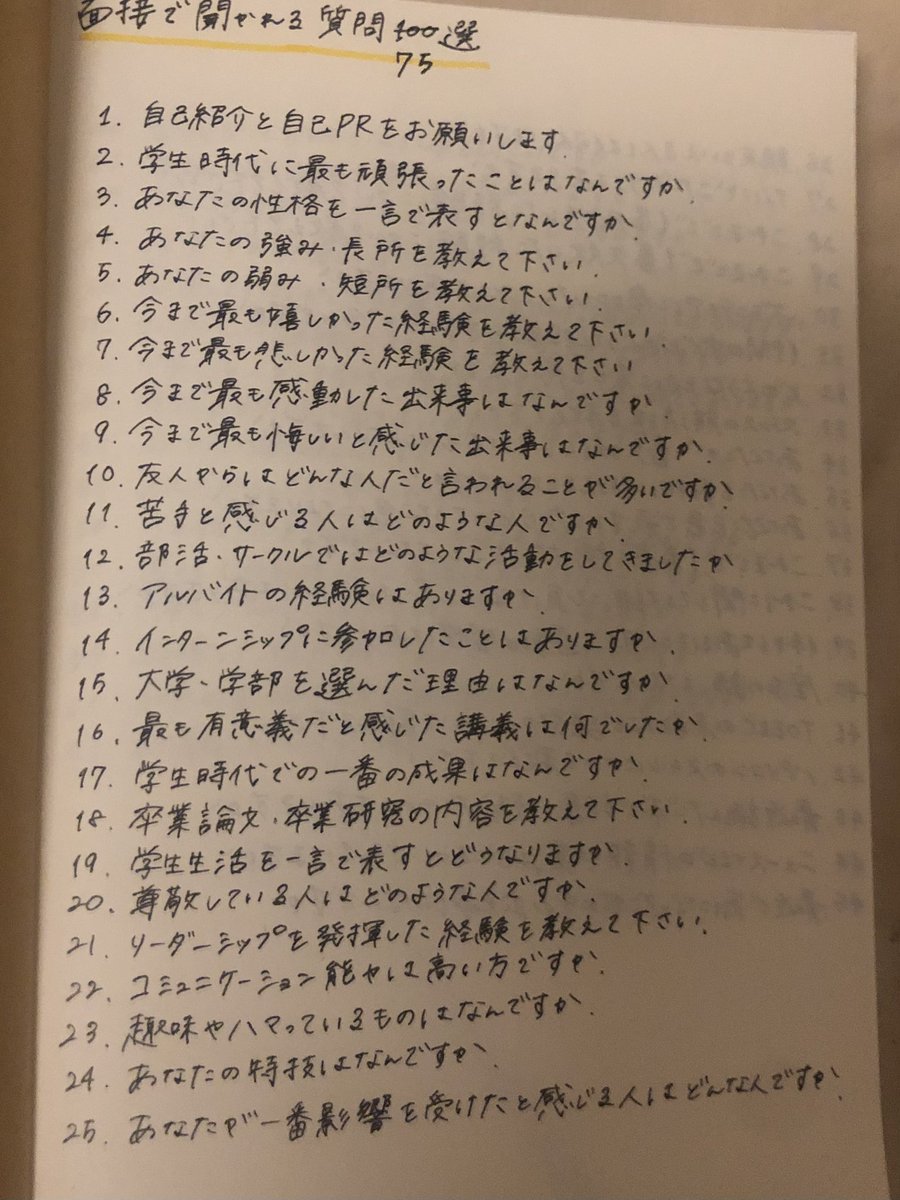 面接で聞かれる質問100選
75
1. 自己紹介と自己PRをお願いします.
2. 学生時代に最も頑張ったことはなんですか
3. あなたの性格を一言で表すとなんですか.
4. あなたの強み・長所を教えて下さい.
5. あなたの弱み・短所を教えて下さい.
6. 今まで最も嬉しかった経験を教えて下さい.
7. 今まで最も悲しかった経験を教えて下さい
8. 今まで最も感動した出来事はなんですか.
9. 今まで最も悔しいと感じた出来事はなんですか.
10. 友人からはどんな人だと言われることが多いですか.
11. 苦手と感じる人はどのような人ですか.
12. 部活・サークルではどのような活動をしてきましたか
13. アルバイトの経験はありますか.
14. インターンシップに参加したことはありますか.
15. 大学・学部を選んだ理由はなんですか.
16. 最も有意義だと感じた講義は何でしたか.
17. 学生時代での一番の成果はなんですか.
18. 卒業論文・卒業研究の内容を教えて下さい.
19. 学生生活を一言で表すとどうなりますか.
20. 尊敬している人はどのような人ですか.
21. リーダーシップを発揮した経験を教えて下さい.
22. コミュニケーション能力は高い方ですか.
23. 趣味やハマっているものはなんですか.
24. あなたの特技はなんですか.
25. あなたが一番影響を受けたと感じる人はどんな人ですか.